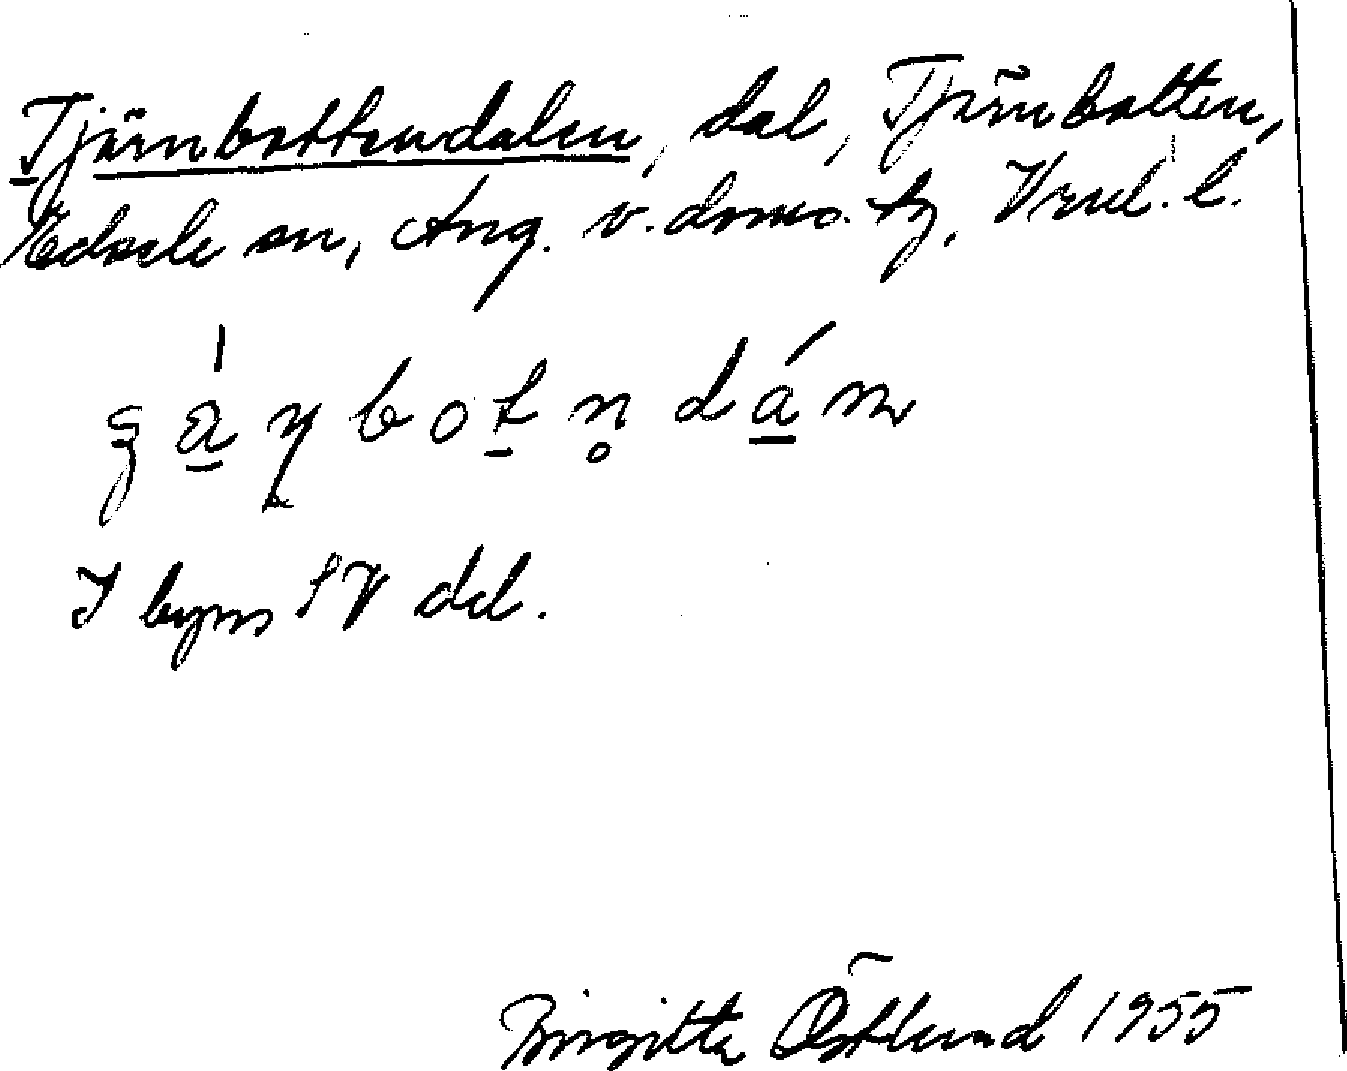 Tjärnbottendalen, dal, Tjärnbotten,
Edsele sn, Ång. v. doms. tg, Vnl. l.
I byns SV del.
Birgitta Östlund 1955